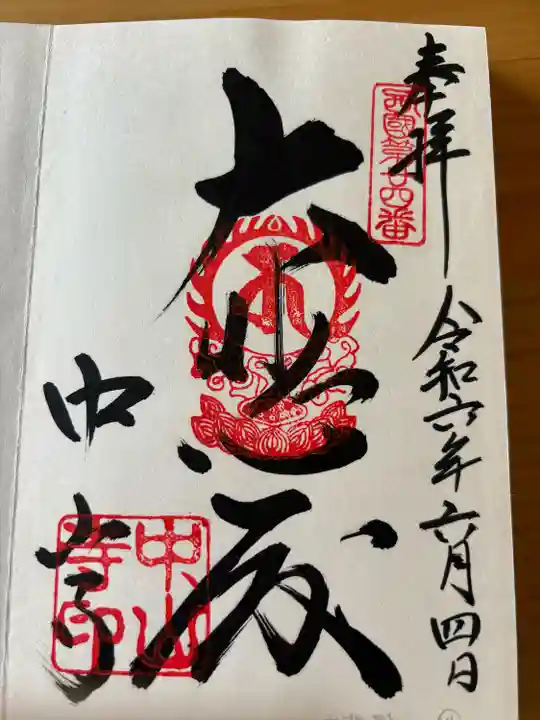 奉拝
西國第廿四番
令和六年六月四日
大悲殿
中山寺
中山
寺印